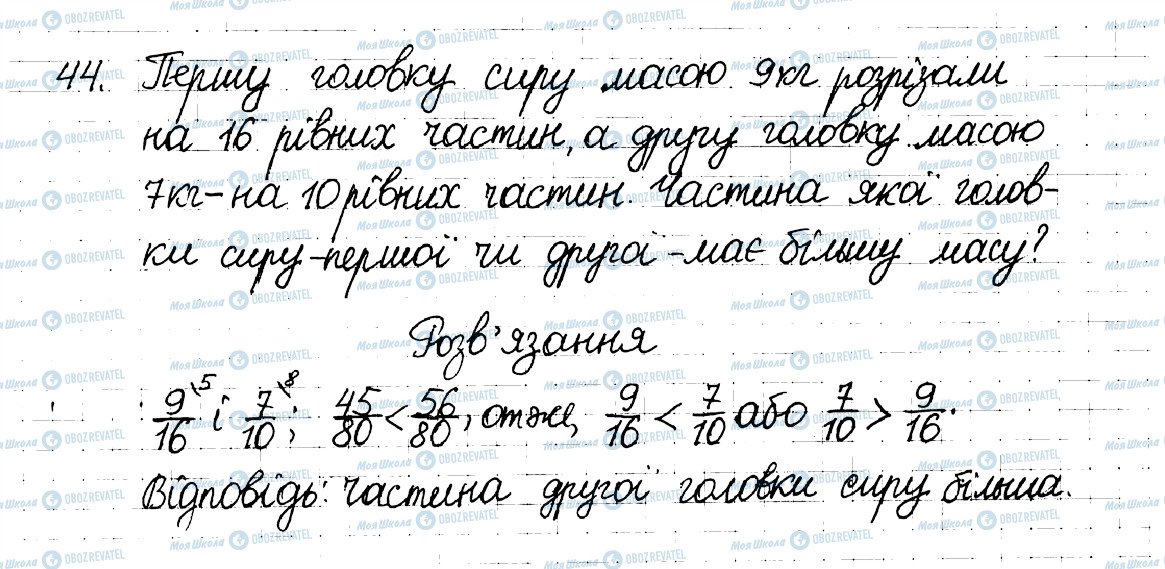 44. Першу головку сиру масою 9кг розрізали
на 16 рівних частин, а другу головку масою
7кг - на 10 рівних частин. Частина якої голов-
ки сиру - першої чи другої - має більшу масу?
Розв'язання
9/16 \5 і 7/10 \8; 45/80 < 56/80, отже, 9/16 < 7/10 або 7/10 > 9/16.
Відповідь: частина другої головки сиру більша.